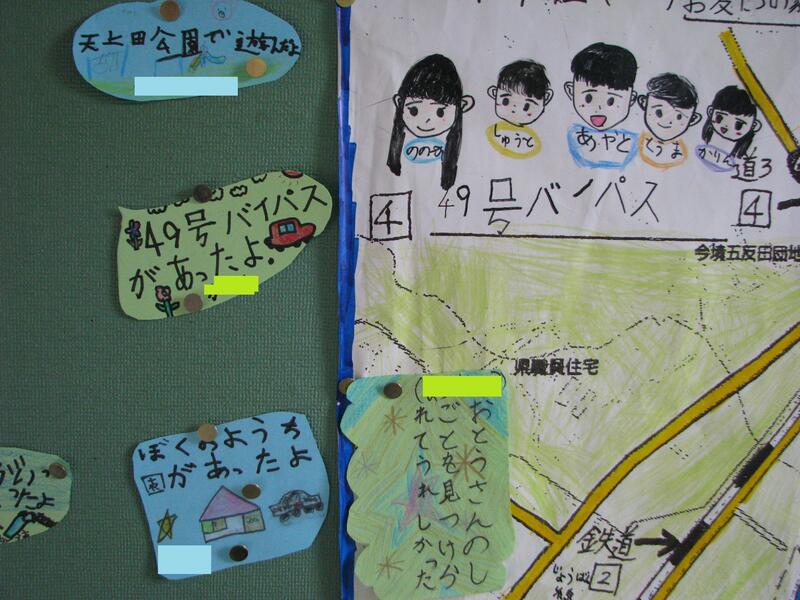 天上田公園で遊んだよ
49号バイパス
があったよ!
ぼくのようち
園があったよ
ったよ
ののか
しゅうと
あやと
とうま
かりん
道3
4
49号バイパス
4
今墳五反田団地
県職員住宅
おとうさんのし
ごとを見つけら
れてうれしかった
鉄道
2